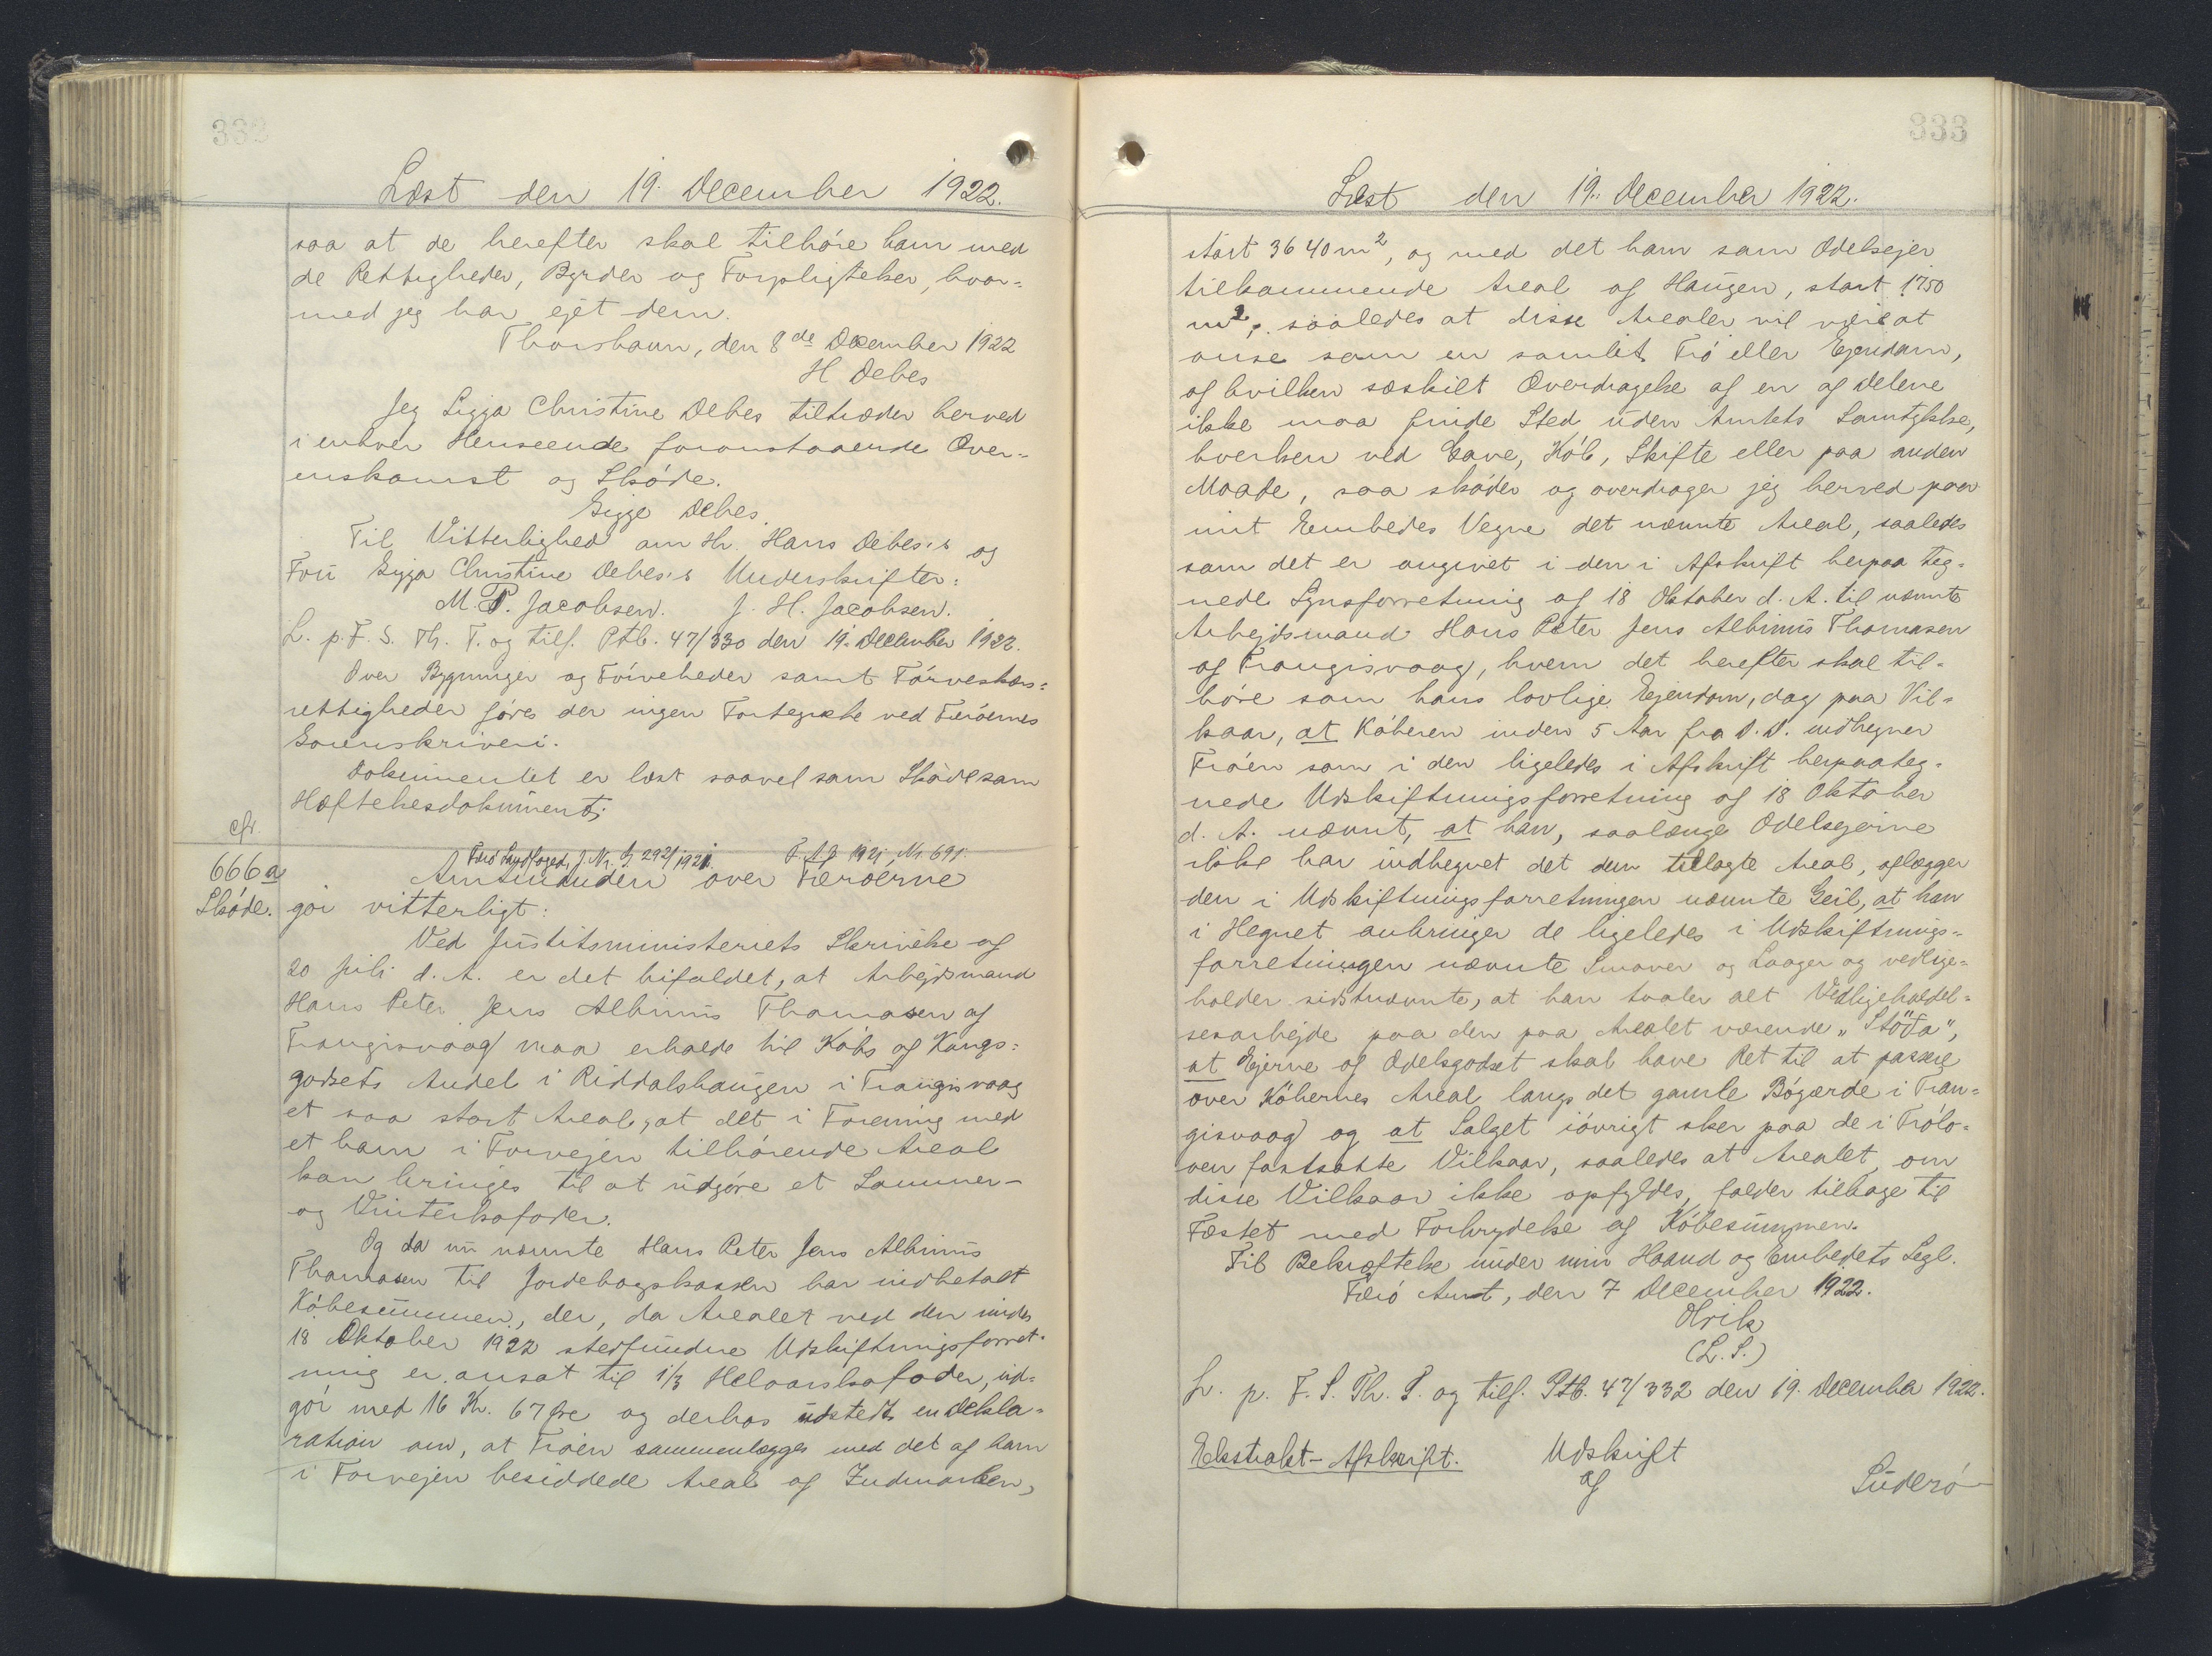 332
Læst den 19. December 1922.
saa at de herefter skal tilhøre ham med
de Rettigheder, Byrder og Forpligtelser, hvor=
med jeg har ejet dem.
Thorshavn, den 8de December 1922
H Debes
Jeg Sigga Christine Debes tiltræder herved
i enhver Henseende foranstaaende Over=
enskomst og Skøde.
Sigge Debes.
Til Vitterlighed om Hr. Hans Debes's og
Fru Sigga Christine Debes's Underskrifter:
M. P. Jacobsen. J. H. Jacobsen.
L. p. F. S. Th. T. og tilf. Ptb. 47/330 den 19. December 1922.
Over Bygninger og samt Tørveskærs=
rettigheder føres der ingen Fortegnelse ved Færøernes
Sorenskriveri.
Dokumentet er læst saavel som Skøde som
Hæftelsesdokument.
cfr.
Færø Landfoged, J. Nr. G 292/1921. F. A. J. 1921, Nr. 691.
666a Amtmanden over Færøerne
Skøde. gør vitterligt:
Ved Justitsministeriets Skrivelse af
20 Juli d. A. er det bifaldet, at Arbejdsmand
Hans Peter Jens Albinus Thomasen af
Trangisvaag maa erholde til Købs af Kongs=
godsets Andel i Riddalshaugen i Trangisvaag
et saa stort Areal, at det i Forening med
et ham i Forvejen tilhørende Areal
kan bringes til at udgøre et Sommer-
og Vinterkofoder.
Og da nu nævnte Hans Peter Jens Albinus
Thomasen til Jordebogskassen har indbetalt
Købesummen, der, da Arealet ved den under
18 Oktober 1922 stedfundne Udskiftningsforret=
ning er ansat til 1/3 Helaarskofoder, ud=
gør med 16 Kr. 67 Øre og derhos udstedt en Dekla=
ration om, at Trøen sammenlægges med det af ham
i Forvejen besiddede Areal af Indmarken,
333
Læst den 19. December 1922.
stort 3640 m2, og med det ham som Odelsejer
tilkommende Areal af Haugen, stort 1750
m2, saaledes at disse Arealer vil være at
anse som en samlet Trø eller Ejendom,
af hvilken særskilt Overdragelse af en af Delene
ikke maa finde Sted uden Amtets Samtykke,
hverken ved Gave, Køb, Skifte eller paa anden
Maade, saa skøder og overdrager jeg herved paa
mit Embedes Vegne det nævnte Areal, saaledes
som det er angivet i den i Afskrift herpaa teg=
nede Synsforretning af 18 Oktober d. A. til nævnte
Arbejdsmand Hans Peter Jens Albinus Thomasen
af Trangisvaag, hvem det herefter skal til=
høre som hans lovlige Ejendom, dog paa Vil=
kaar, at Køberen inden 5 Aar fra D. D. indhegner
Trøen som i den ligeledes i Afskrift herpaateg=
nede Udskiftningsforretning af 18 Oktober
d. A. nævnt, at han, saalænge Odelsejerne
ikke har indhegnet det dem tillagte Areal, aflægger
den i Udskiftningsforretningen nævnte Geil, at han
i Hegnet anbringer de ligeledes i Udskiftnings=
forretningen nævnte Smaver og Laager og vedlige=
holder sidstnævnte, at han taaler alt Vedligeholdel=
sesarbejde paa den paa Arealet værende "Stöđa",
at Ejerne af Odelsgodset skal have Ret til at passere
over Købernes Areal langs det gamle Bøgærde i Tran=
gisvaag og at Salget iøvrigt sker paa de i Trølo=
ven fastsatte Vilkaar, saaledes at Arealet, om
disse Vilkaar ikke opfyldes, falder tilbage til
Fæstet med Forbrydelse af Købesummen.
Til Bekræftelse under min Haand og Embedets Segl.
Færø Amt, den 7 December 1922.
Ørik
(L. S.)
L. p. F. S. Th. T. og tilf. Ptb. 47/332 den 19. December 1922.
Ekstrakt-Afskrift. Udskrift
af
Suderø